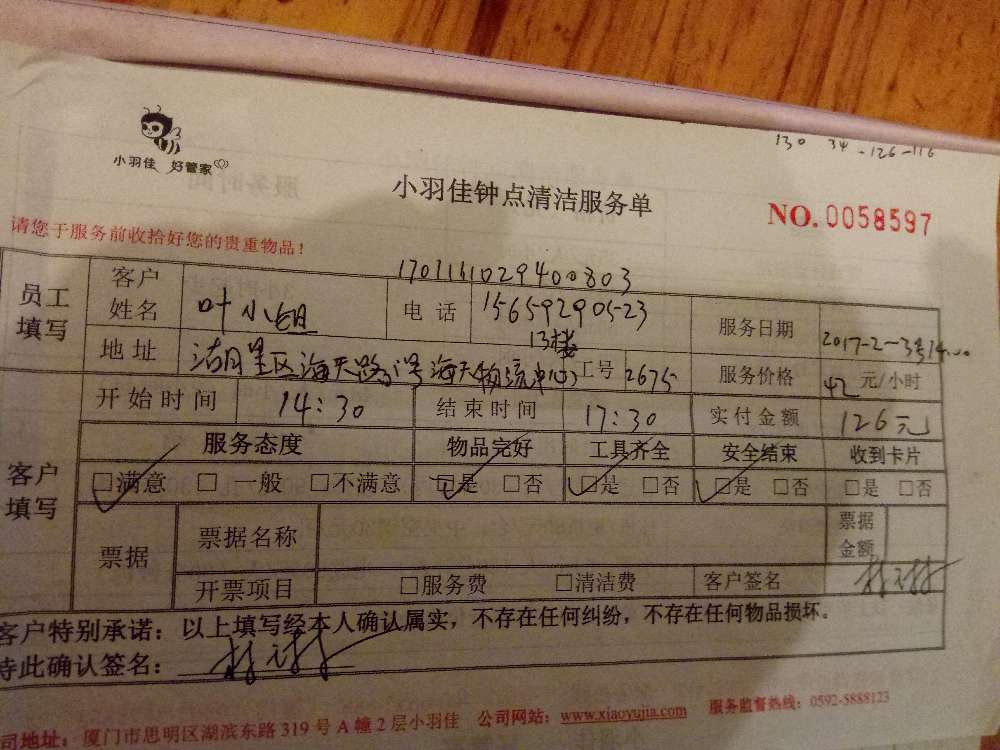 130 34-126-116
小羽佳 好管家
小羽佳钟点清洁服务单
NO.0058597
请您于服务前收拾好您的贵重物品！
1701161029400803
员工填写
客户姓名 叶小姐 电话 15659290523 服务日期 2017-2-3
地址 湖里区海天路 号海天物流中心 13楼 工号 2675 服务价格 42 元/小时
开始时间 14:30 结束时间 17:30 实付金额 126元
客户填写
服务态度 物品完好 工具齐全 安全结束 收到卡片
□满意 □一般 □不满意 □是 □否 □是 □否 □是 □否 □是 □否
票据 票据名称 票据金额
开票项目 □服务费 □清洁费 客户签名
客户特别承诺：以上填写经本人确认属实，不存在任何纠纷，不存在任何物品损坏。
特此确认签名：
司地址：厦门市思明区湖滨东路319号A幢2层小羽佳 公司网站：www.xiaoyujia.com 服务监督热线：0592-5888123